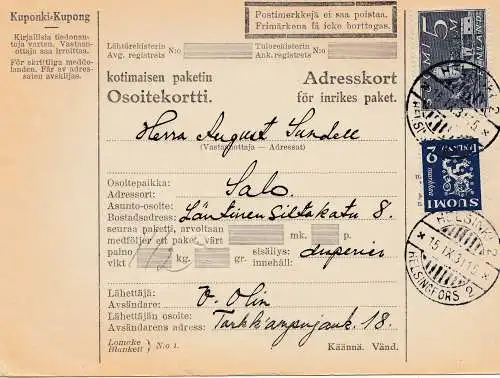 Kuponki-Kupong
Kirjallisia tiedonan-
toja varten. Vastaan-
ottaja saa irroittaa.
För skriftliga medde-
landen. Får av adres-
saten avskiljas.
Postimerkkejä ei saa poistaa.
Frimärkena få icke borttagas.
Lähtörekisterin
Avg. registrets
N:o
Tulorekisterin
Ank. registrets
N:o
kotimaisen paketin
Osoitekortti.
Adresskort
för inrikes paket.
Herra August Sundell
(Vastaanottaja — Adressat)
Osoitepaikka:
Adressort:
Salo.
Asunto-osoite:
Bostadsadress:
Läntinen Siltakatu 8.
seuraa paketti, arvoltaan
medföljer ett paket, värt
mk.
p.
paino
vikt
1/2
kg.
gr.
sisällys:
innehåll:
Lähettäjä:
Avsändare:
V. Olin
Lähettäjän osoite:
Avsändarens adress:
18.
Lomake
Blankett
N:o 1.
Käännä. Vänd.
5
MARKKAA
FINLAND
SUOMI
2
HELSINKI 2
15.IX.31.15
HELSINGFORS 2